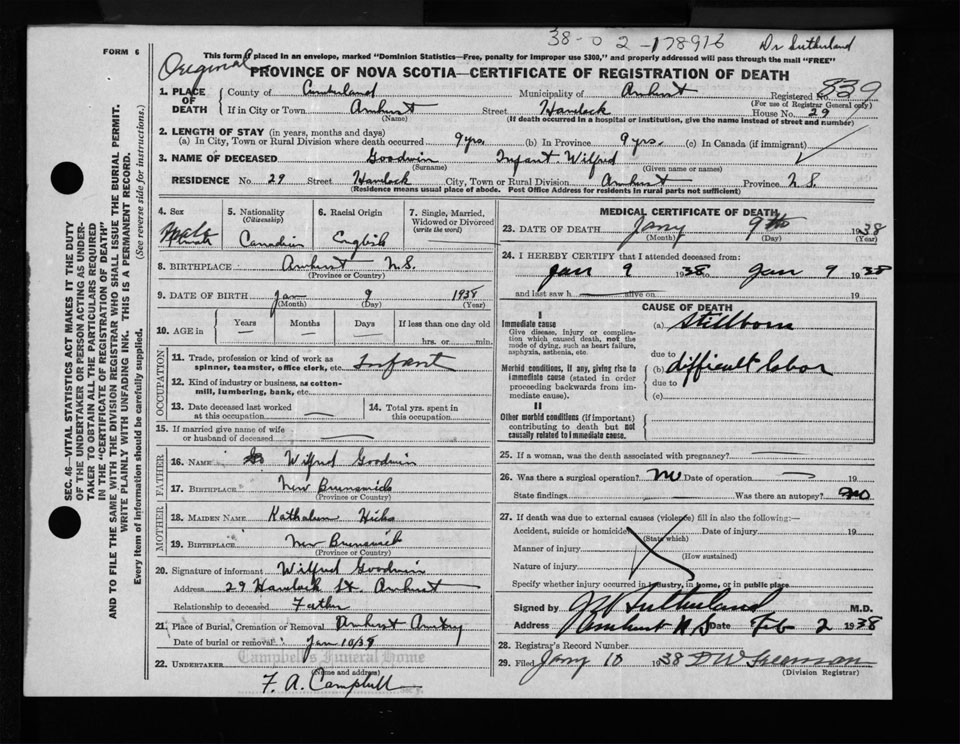 38-0 2-178916 Dr Sutherland
FORM 6
This form if placed in an envelope, marked "Dominion Statistics—Free, penalty for improper use $300," and properly addressed will pass through the mail "FREE"
Original
PROVINCE OF NOVA SCOTIA—CERTIFICATE OF REGISTRATION OF DEATH
SEC. 46—VITAL STATISTICS ACT MAKES IT THE DUTY
OF THE UNDERTAKER OR PERSON ACTING AS UNDER-
TAKER TO OBTAIN ALL THE PARTICULARS REQUIRED
IN THE "CERTIFICATE OF REGISTRATION OF DEATH"
AND TO FILE THE SAME WITH THE DIVISION REGISTRAR WHO SHALL ISSUE THE BURIAL PERMIT.
WRITE PLAINLY WITH UNFADING INK. THIS IS A PERMANENT RECORD.
Every item of information should be carefully supplied. (See reverse side for instructions.)
1. PLACE OF DEATH County of Cumberland Municipality of Amherst Registered No. 839
(For use of Registrar General only)
If in City or Town Amherst Street Havelock House No. 29
(Name) (If death occurred in a hospital or institution, give the name instead of street and number)
2. LENGTH OF STAY (in years, months and days)
(a) In City, Town or Rural Division where death occurred 9 yrs. (b) In Province 9 yrs. (c) In Canada (if immigrant)
3. NAME OF DECEASED Goodwin Infant Wilfred
(Surname) (Given name or names)
RESIDENCE No. 29 Street Havelock City, Town or Rural Division Amherst Province N.S.
(Residence means usual place of abode. Post Office Address for residents in rural parts not sufficient)
4. Sex Male
5. Nationality (Citizenship) Canadian
6. Racial Origin English
7. Single, Married, Widowed or Divorced (write the word)
8. BIRTHPLACE Amherst N.S.
(Province or Country)
9. DATE OF BIRTH Jan 9 1938
(Month) (Day) (Year)
10. AGE in Years Months Days If less than one day old
hrs. or min.
OCCUPATION
11. Trade, profession or kind of work as Infant
spinner, teamster, office clerk, etc.
12. Kind of industry or business, as cotton-
mill, lumbering, bank, etc.
13. Date deceased last worked at this occupation
14. Total yrs. spent in this occupation
15. If married give name of wife
or husband of deceased
FATHER
16. NAME Wilfred Goodwin
17. BIRTHPLACE New Brunswick
(Province or Country)
MOTHER
18. MAIDEN NAME Kathaleen Hicks
19. BIRTHPLACE New Brunswick
(Province or Country)
20. Signature of informant Wilfred Goodwin
Address 29 Havelock St. Amherst
Relationship to deceased Father
21. Place of Burial, Cremation or Removal Amherst
Date of burial or removal Jan 10/38
22. UNDERTAKER Campbell's Funeral Home
(Name and address)
F. A. Campbell
MEDICAL CERTIFICATE OF DEATH
23. DATE OF DEATH Jany 9th 1938
(Month) (Day) (Year)
24. I HEREBY CERTIFY that I attended deceased from:
Jan 9 1938 to Jan 9 1938
and last saw h alive on 19
CAUSE OF DEATH
I
Immediate cause (a) Stillborn
Give disease, injury or complica-
tion which caused death, not the
mode of dying, such as heart failure,
asphyxia, asthenia, etc.
due to
Morbid conditions, if any, giving rise to (b) difficult labor
immediate cause (stated in order
proceeding backwards from im-
mediate cause).
due to
(c)
II
Other morbid conditions (if important)
contributing to death but not
causally related to immediate cause.
25. If a woman, was the death associated with pregnancy?
26. Was there a surgical operation? No Date of operation 19
State findings Was there an autopsy? No
27. If death was due to external causes (violence) fill in also the following:—
Accident, suicide or homicide Date of injury 19
(State which)
Manner of injury
(How sustained)
Nature of injury
Specify whether injury occurred in industry, in home, or in public place
Signed by Sutherland M.D.
Address Amherst N.S Date Feb 2 1938
28. Registrar's Record Number
29. Filed Jany 10 1938 D W Freeman
(Division Registrar)